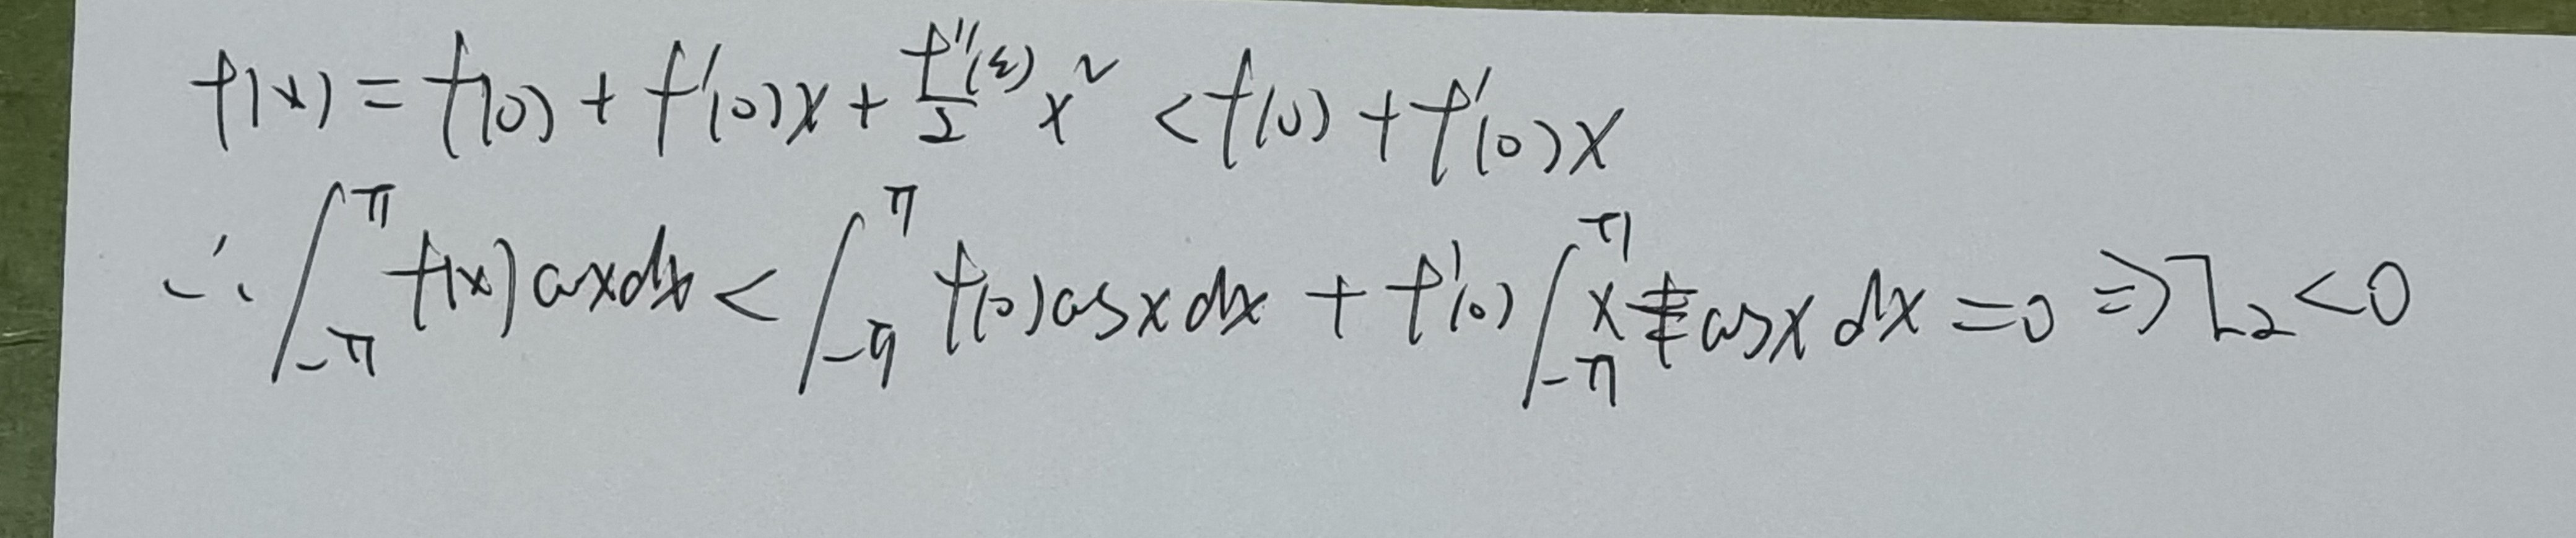 f(x) = f(0) + f'(0)x + \frac{f''(ξ)}{2} x^2 < f(0) + f'(0)x
∴ \int_{-π}^{π} f(x) cosx dx < \int_{-π}^{π} f(0) cosx dx + f'(0) \int_{-π}^{π} x cosx dx = 0 ⇒ I_2 < 0